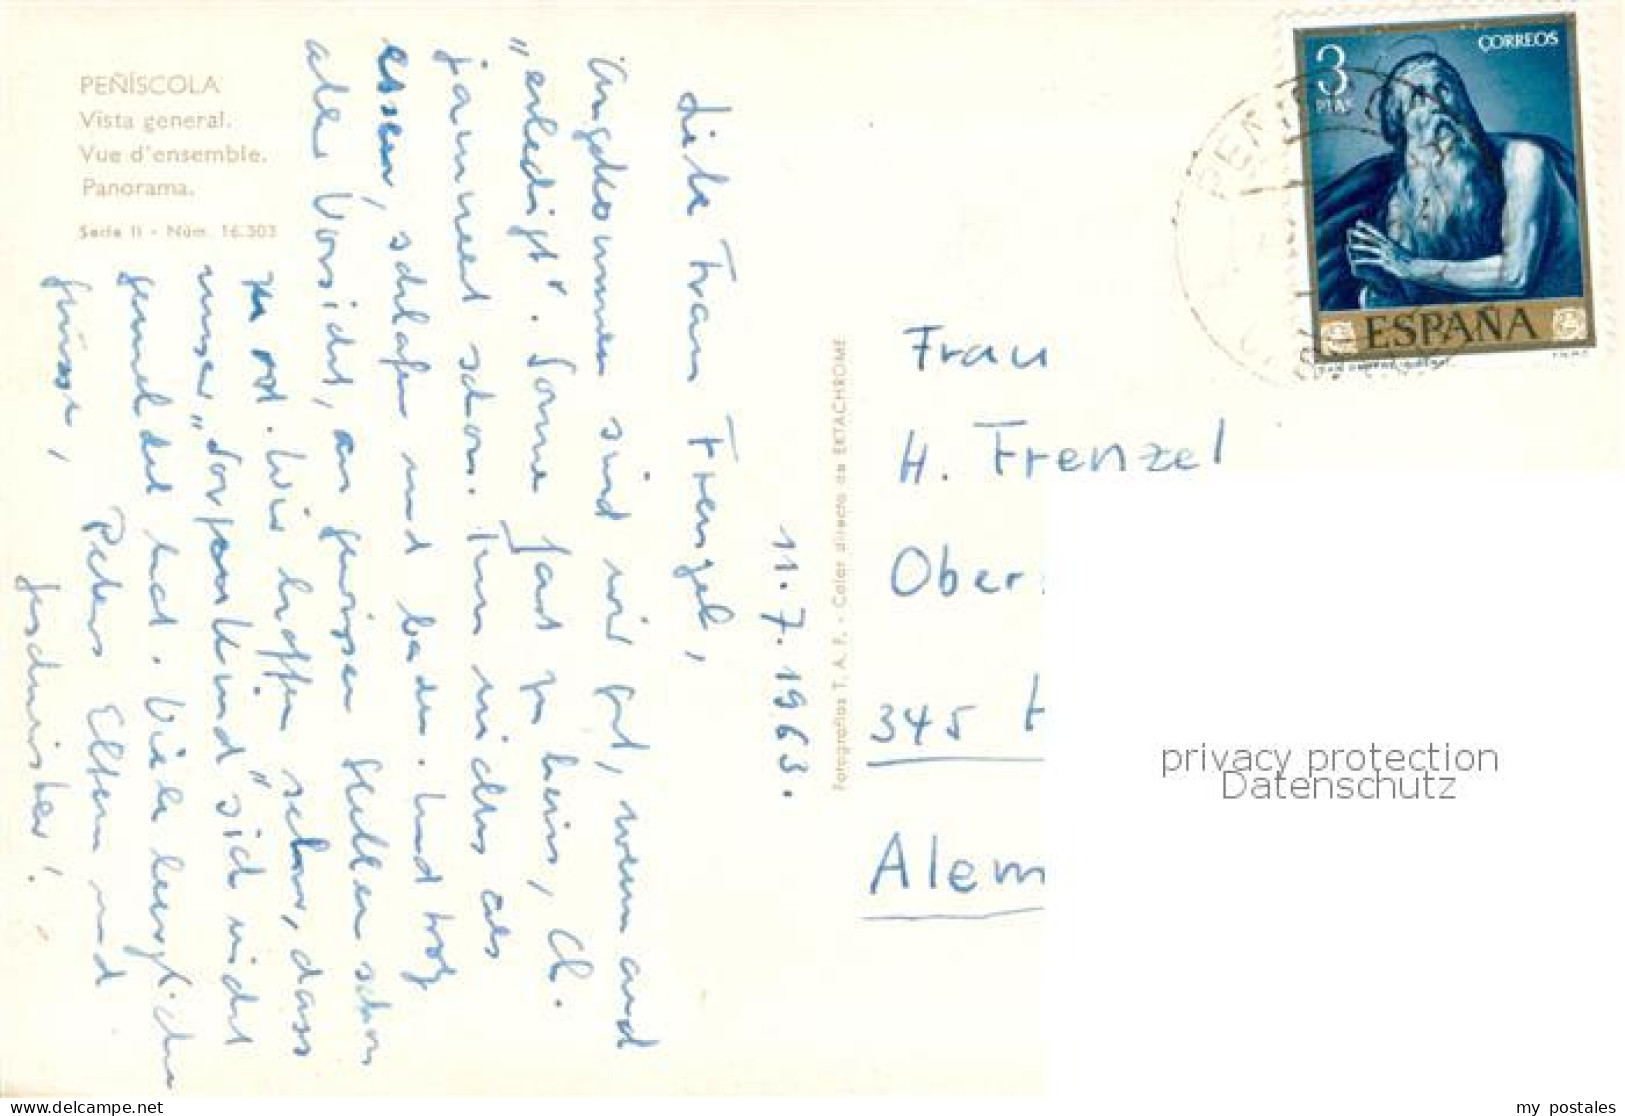 PEÑÍSCOLA
Vista general.
Vue d'ensemble.
Panorama.
Serie II - Núm. 16.303
11.7.1963.
Liebe Frau Frenzel,
Angekommen sind wir gut, wenn auch
„erledigt". Sonne fast zu heiss, Ch.
jammert schon. Tun nichts als
essen, schlafen und baden. Und trotz
aller Vorsicht, an gewissen Stellen schon
zu rot. Wir hoffen sehr, dass
unser „Sorgenkind" sich nicht
gemeldet hat. Viele herzliche
Grüsse, Peters Eltern und
Geschwister!
Fotografías T. A. F. - Color directo de EKTACHROME
3
PTAS
CORREOS
ESPAÑA
Frau
H. Frenzel
Ober
345 H
Alem
privacy protection
Datenschutz
www.delcampe.net
my_postales